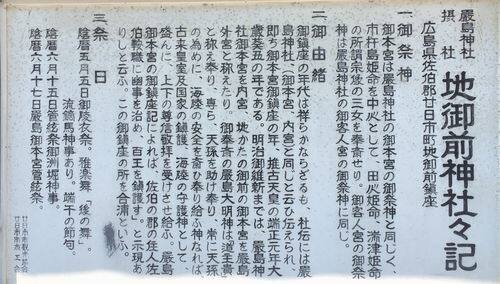 嚴島神社
摂社 地御前神社々記
広島県佐伯郡廿日市町地御前鎮座
一 御祭神
御本宮は嚴島神社の御本宮の御祭神と同じく、
市杵島姫命を中心として、田心姫命、湍津姫命
の所謂宗像の三女を奉斎せり。御客人宮の御祭
神は嚴島神社の御客人宮の御祭神に同じ。
二 御由緒
御鎮座の年代は祥らかならざるも、社伝には嚴
島神社、(御本宮、内宮)と同じと云ひ伝えられ、
即ち御本宮御鎮座の年、推古天皇の端正元年大
歳癸丑の年である。明治御維新までは、嚴島神
社御本宮を内宮、地かたの御前の御本宮を嚴島
外宮と称えたり。御奉斎の嚴島大明神は道主貴
と称え奉り、専ら、天孫を助け奉り、常に天孫
の為めに、海陸の安全を斎ひ奉り給ふ神なれば、
古来皇室及国家の鎮護、海陸の守護神として
盛んに、上下の尊信敬拝を受けさせ給ふ。嚴島
御本宮の御鎮座記によれば、佐伯の郡の住人佐
伯鞍職に幽事を治め、百王を鎮護す。と示現あ
りしと云ふ。この御鎮座の所を合浦といふ。
三 祭日
陰暦五月五日御陵衣祭。雅楽舞、「後の舞」。
流鏑馬神事あり。端午の節句。
陰暦六月十五日管弦祭御洲堀神事。
陰暦六月十七日嚴島御本宮管弦祭。